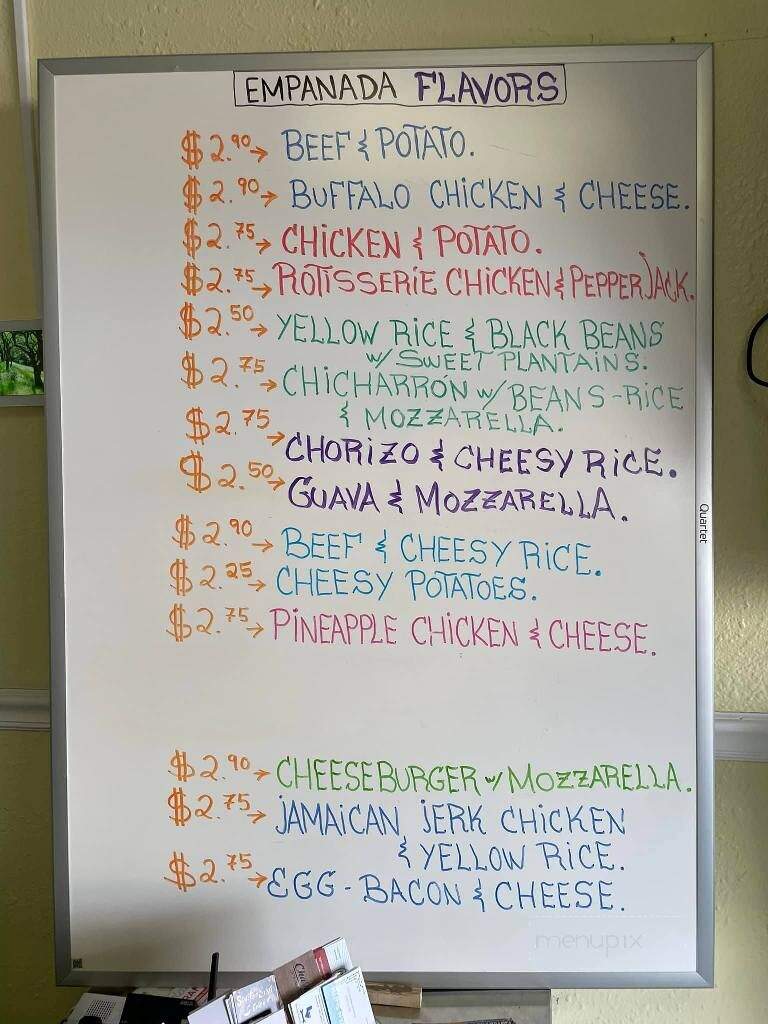 EMPANADA FLAVORS
$2.90→ BEEF & POTATO.
$2.90→ BUFFALO CHICKEN & CHEESE.
$2.75→ CHICKEN & POTATO.
$2.75→ ROTISSERIE CHICKEN & PEPPER JACK.
$2.50→ YELLOW RICE & BLACK BEANS
w/ SWEET PLANTAINS.
$2.75→ CHICHARRÓN w/ BEANS-RICE
& MOZZARELLA.
$2.75→ CHORIZO & CHEESY RICE.
$2.50→ GUAVA & MOZZARELLA.
$2.90→ BEEF & CHEESY RICE.
$2.25→ CHEESY POTATOES.
$2.75→ PINEAPPLE CHICKEN & CHEESE.
$2.90→ CHEESEBURGER w/ MOZZARELLA.
$2.75→ JAMAICAN JERK CHICKEN
& YELLOW RICE.
$2.75→ EGG - BACON & CHEESE.
Quartet
menupix